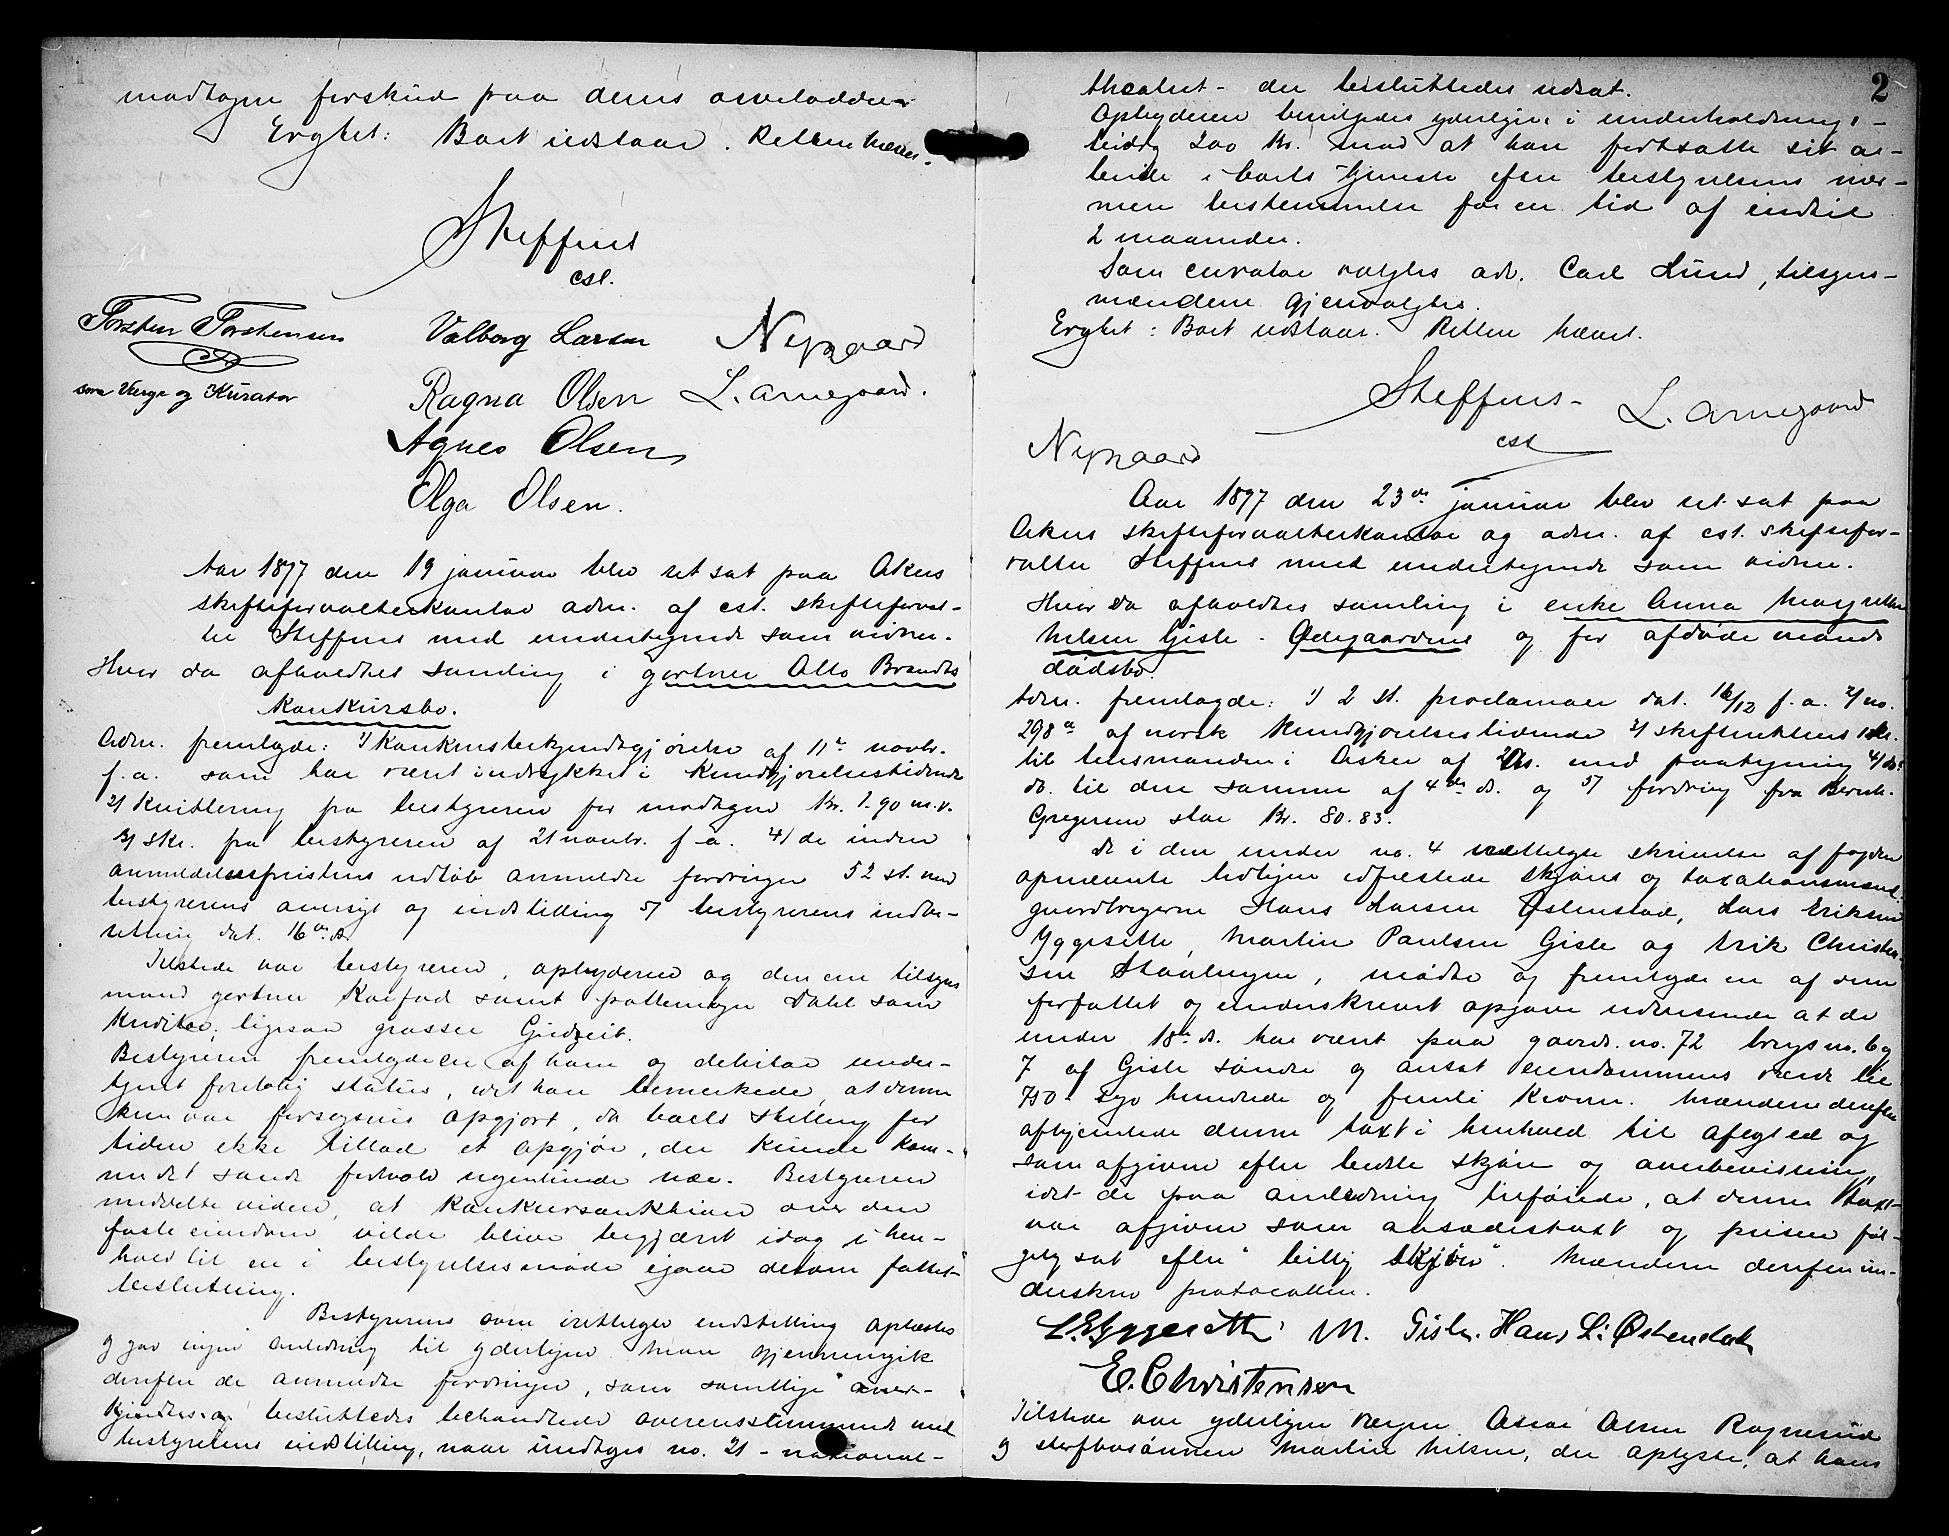 modtagne forskud paa deres arvelodder.
Eragtet: Boet udstaar. Retten hævet.
Steffens
cst.
Torsten Torstensen
som Verge og Kurator
Valborg Larsen Nygaard
Ragna Olsen L. Arnegaard.
Agnes Olsen
Olga Olsen.
Aar 1897 den 19 januar blev ret sat paa Akers
skifteforvalterkontor adm. af cst. skifteforval-
ter Steffens med undertegnede som vidner.
Hvor da afholdtes samling i gartner Otto Brandts
konkursbo.
Adm. fremlagde: 1/ Konkursbekjendtgjørelse af 11te novbr.
f. a. som har været indrykket i Kundgjørelsestidende
2/ Kvittering fra bestyreren for modtagne Kr. 1.90 m. v.
3/ skr. fra bestyreren af 21 novbr. f. a. 4/ de inden
anmeldelsesfristens udløb anmeldte fordringer 52 st. med
bestyrerens oversigt og indstilling 5/ bestyrerens indbe-
retning dat. 16de ds.
Tilstede var bestyreren, opbyderen og den ene tilsyns
mand gartner samt pottemager Dahl som
kreditor, ligesaa grosser
Bestyreren fremlagde en af ham og debitor under-
tegnet foreløbig status, idet han bemerkede, at denne
kun var forsøgsvis opgjort, da boets stilling for
tiden ikke tillod et opgjør, der kunde kom-
me det sande forhold nogenlunde nær. Bestyreren
meddelte videre, at konkursauktion over den
faste eiendom vilde blive begjæret idag i hen-
hold til en i bestyrelsesmøde igaar desom fattet
beslutning.
Bestyrerens som irettelagte indstilling oplæstes
og gav ingen anledning til yderligere. Man gjennemgik
derefter de anmeldte fordringer, som samtlige aner-
kjendtes og besluttedes behandlede overensstemmende med
bestyrelsens indstilling, naar undtages no. 21 - national-
2
theatret - der besluttedes udsat.
Opbyderen bevilgedes yderligere i underholdnings-
bidrag 200 Kr. mod at han fortsatte sit ar-
beide i boets tjeneste efter bestyrelsens nær-
mere bestemmelse for en tid af indtil
2 maaneder.
Som curator valgtes adv. Carl Lund, tilsyns-
mændene gjenvalgtes.
Eragtet: Boet udstaar. Retten hævet.
Steffens L. Arnegaard
cst
Nygaard
Aar 1897 den 23de januar blev ret sat paa
Akers skifteforvalterkontor og adm. af cst. skiftefor-
valter Steffens med undertegnede som vidner.
Hvor da afholdtes samling i enke Anna Margrethe
Nilsen Gisle - Ødegaardens og før afdøde mands
dødsbo.
Adm. fremlagde: 1/ 2 st. proclamaer dat. 16/12 f. a. 2/ no.
298a af norsk Kundgjørelsestidende 3/ skifterettens skr.
til lensmanden i Asker af 2 ds. med paategning 4/ ds.
do. til den samme af 4de ds. og 5/ fordring fra Bernh.
Gregersen stor Kr. 80.83.
De i den under no. 4 vedtagte skrivelse af fogden
opnævnte tidligere edfæstede skjøns og taxationsmænd
gaardbrugerne Hans Larsen Østenstad, Lars Eriksen
Yggesette, Martin Paulsen Gisle og Erik Christen-
sen, mødte og fremlagde en af dem
forfattet og underskrevet opgave udvisende at de
under 18de ds. har været paa gaards no. 72 brugs no. 6 og
7 af Gisle søndre og ansat eiendommens værdi til
750 - syv hundrede og femti Kroner. Mændene derefter
afhjemlede denne taxt i henhold til aflagt ed og
som afgiven efter bedste skjøn og overbevisning,
idet de paa anledning tilføiede, at denne taxt
var afgiven som aasædestaxt og prisen føl-
gelig sat efter "billig skjøn". Mændene derefter un-
derskrev protocollen.
L. E. Yggesette M. Gisle. Hans L. Østenstad
E. Christensen
Tilstede var yderligere vergen Oscar Olsen
og sterbosønnen Martin Nilsen, der oplyste, at hans